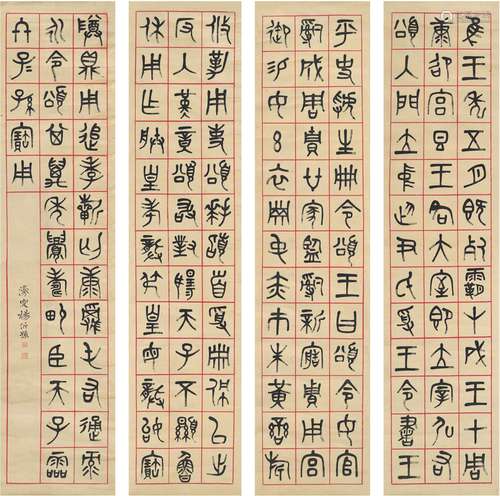 隹王三年五月既死霸甲戌王才周
康邵宮旦王各大室即立宰弘右
頌入門立中廷尹氏受王令書王
乎史虢生冊令頌王曰頌令女官
司成周貯廿家監司新造貯用宮
御易女玄衣黹屯赤巿朱黃䜌旂
攸勒用事頌拜稽首受冊佩以出
反入堇章頌敢對揚天子不顯魯
休用乍朕皇考龏弔皇母龏姒寶
尊鼎用追孝祈匄康屯右通彔
永令頌其萬年眉壽畯臣天子霝
冬子孫寶用
濠叟楊沂孫